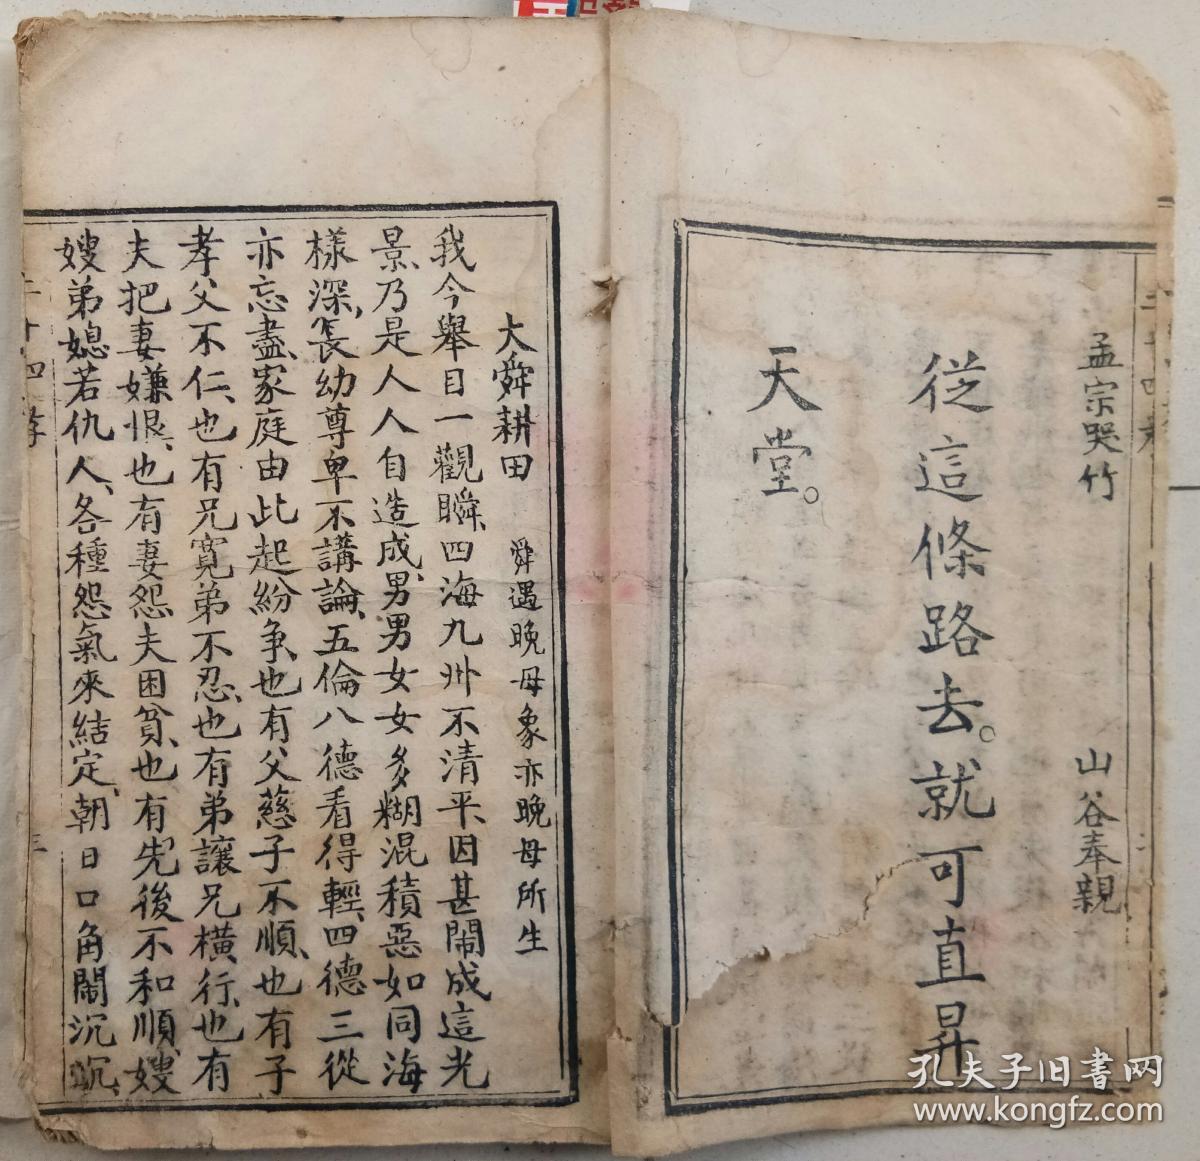 孟宗哭竹　山谷奉親
從這條路去。就可直昇
天堂。
大舜耕田　舜遇晚母象亦晚母所生
我今舉目一觀瞬、四海九州不清平、因甚鬧成這光
景、乃是人人自造成、男男女女多糊混積惡如同海
樣深、長幼尊卑不講論、五倫八德看得輕、四德三從
亦忘盡、家庭由此起紛爭、也有父慈子不順、也有子
孝父不仁、也有兄寬弟不忍、也有弟讓兄橫行、也有
夫把妻嫌恨、也有妻怨夫困貧、也有先後不和順、嫂
嫂弟媳若仇人、各種怨氣來結定、朝日口角鬧沉沉、
二十四孝
三
孔夫子旧书网
www.kongfz.com